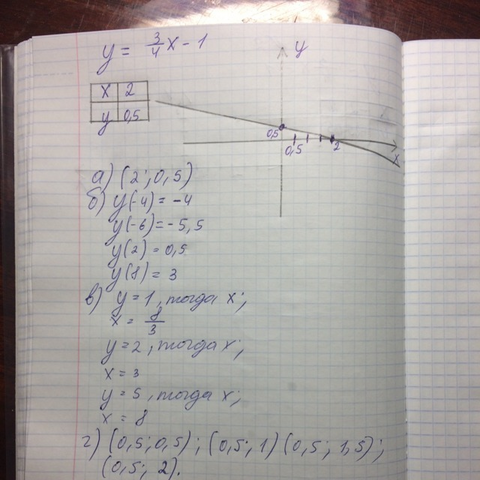 y = 3/4 x - 1
x 2
y 0,5
y
0,5
0,5
2
x
а) (2 ; 0,5)
б) y(-4) = -4
y(-6) = -5,5
y(2) = 0,5
y(8) = 3
в) y = 1, тогда x;
x = 8/3
y = 2, тогда x;
x = 3
y = 5, тогда x;
x = 8
г) (0,5; 0,5) ; (0,5; 1) (0,5; 1,5);
(0,5; 2).